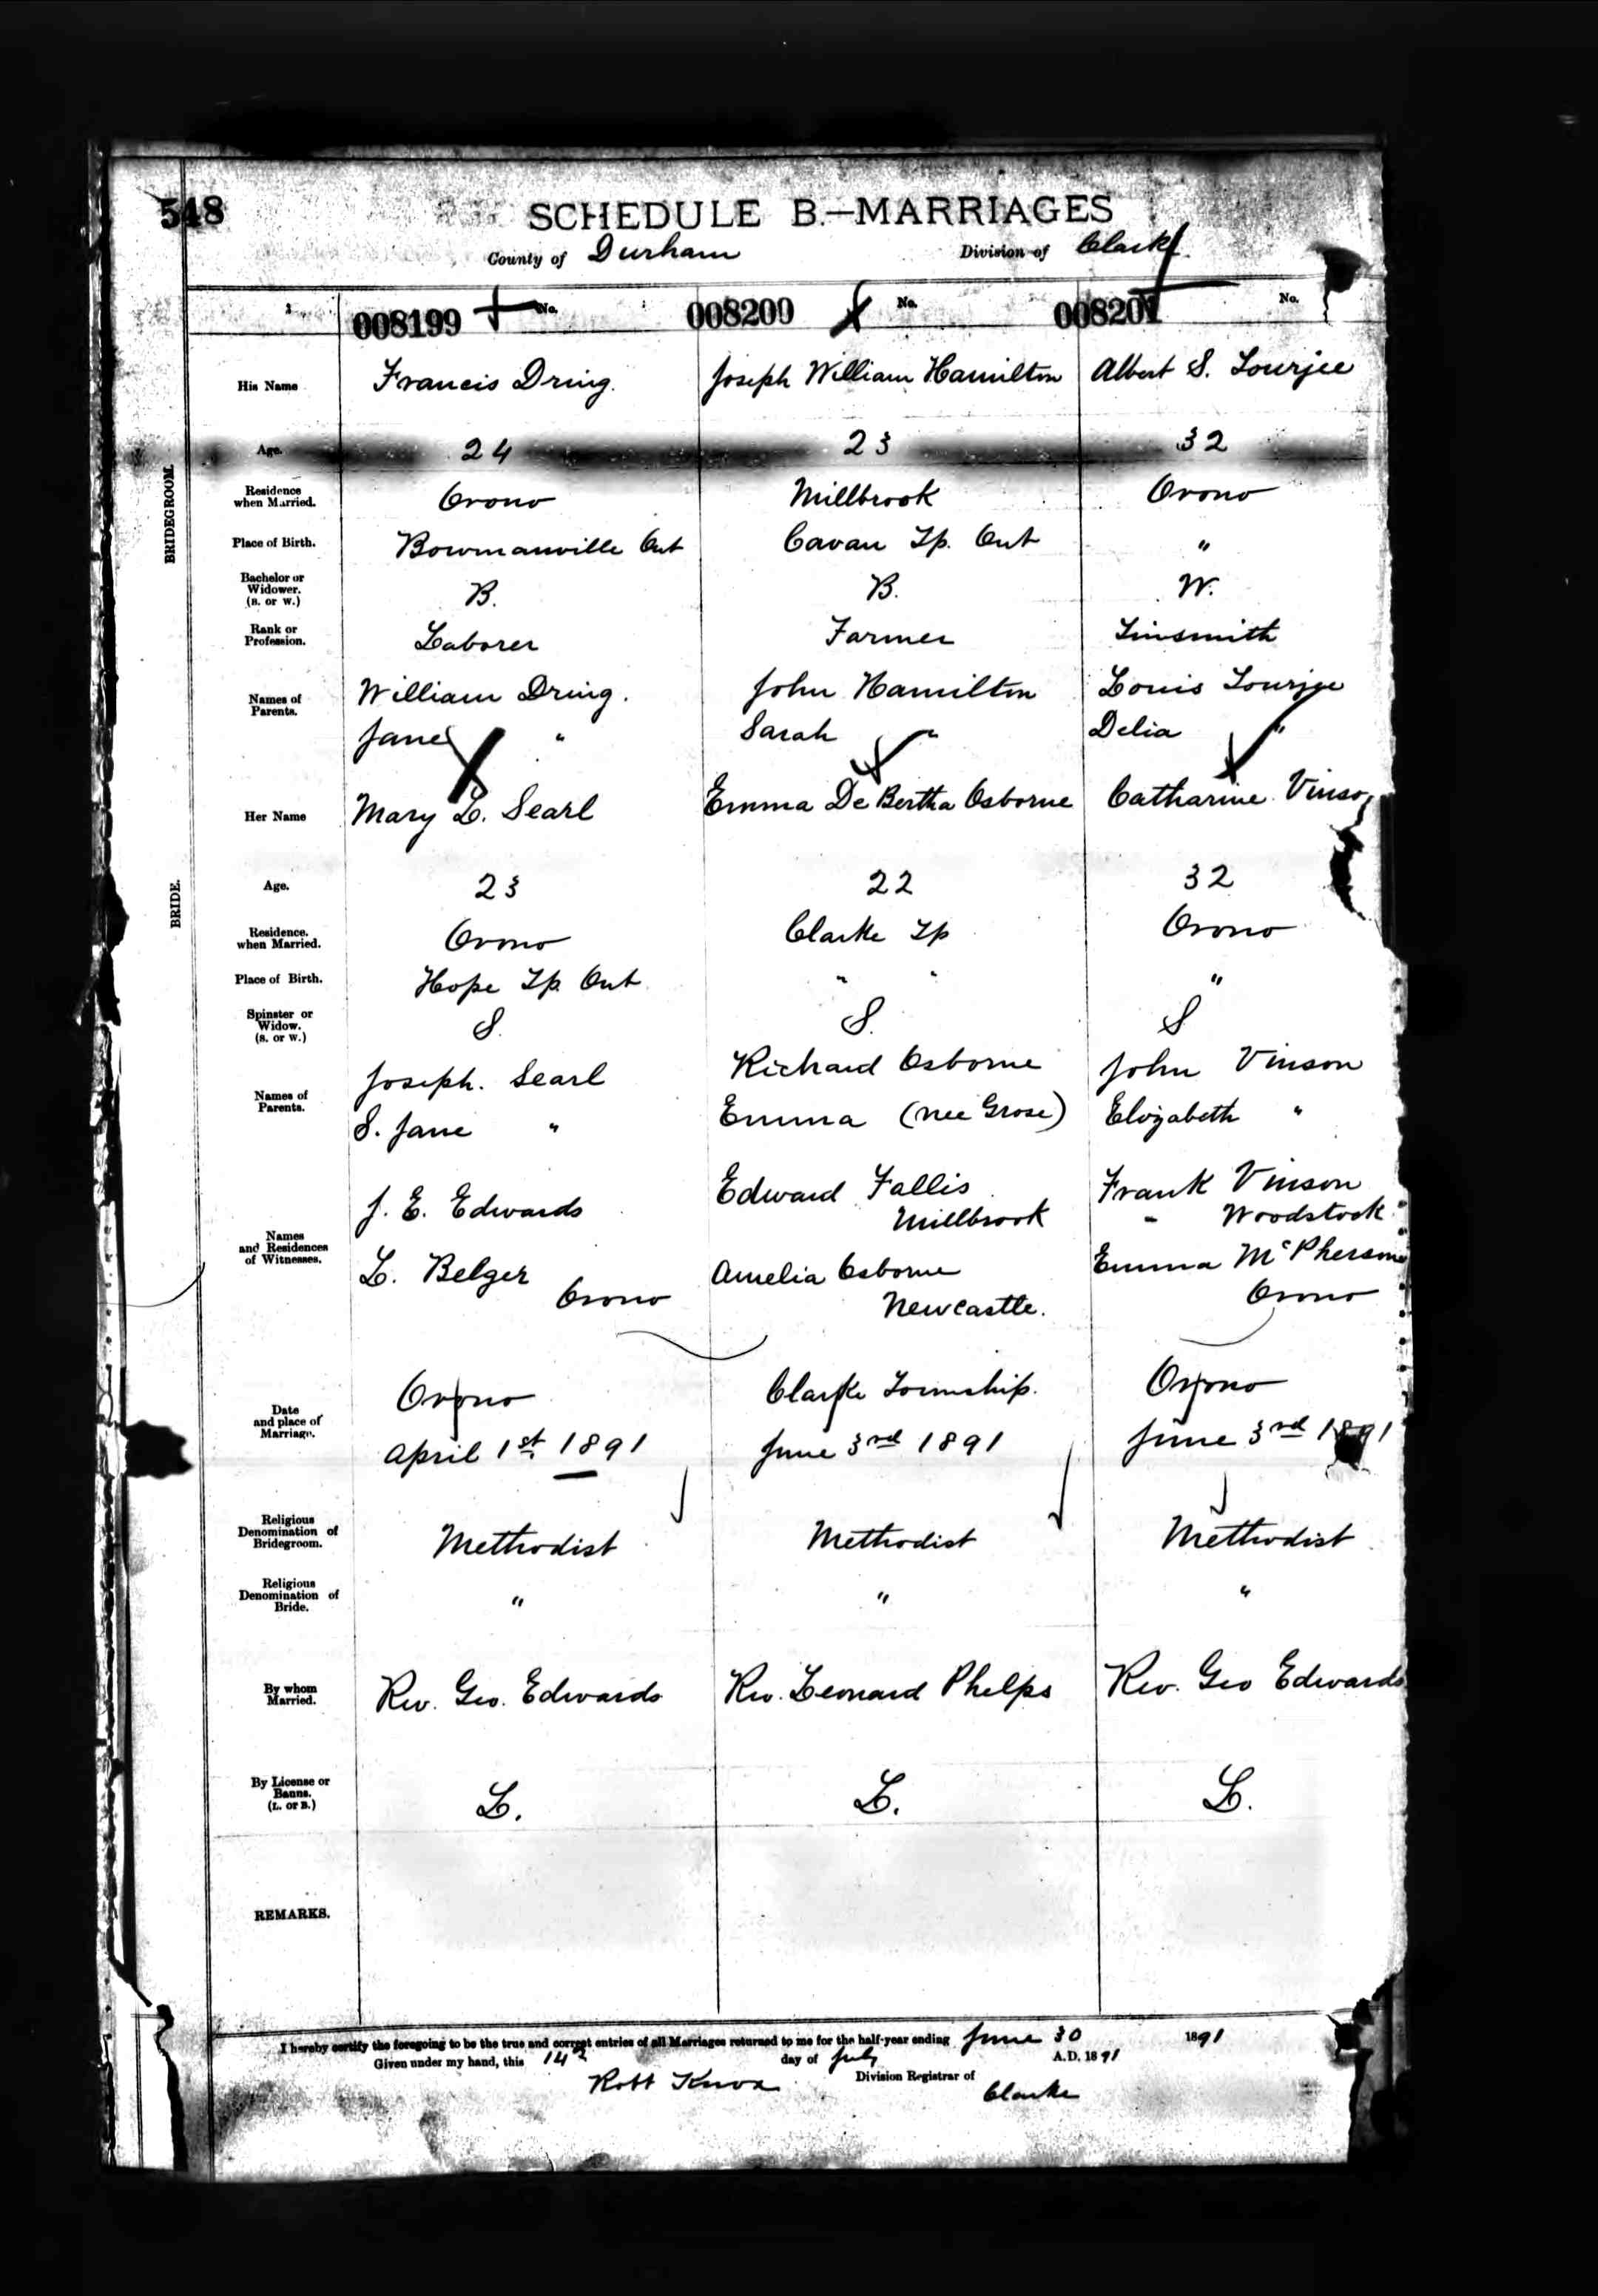 548
SCHEDULE B.—MARRIAGES
County of Durham Division of Clarke
008199 No. 008200 No. 008201 No.
BRIDEGROOM.
His Name Francis Dring. Joseph William Hamilton Albert S. Tourjee
Age. 24 23 32
Residence when Married. Orono Millbrook Orono
Place of Birth. Bowmanville Ont Cavan Tp. Ont "
Bachelor or Widower. (B. or W.) B. B. W.
Rank or Profession. Laborer Farmer Tinsmith
Names of Parents. William Dring. John Hamilton Louis Tourjee
Jane " Sarah " Delia "
BRIDE.
Her Name Mary L. Searl Emma De Bertha Osborne Catharine Vinso
Age. 23 22 32
Residence. when Married. Orono Clarke Tp Orono
Place of Birth. Hope Tp. Ont " " "
Spinster or Widow. (S. or W.) S. S. S
Names of Parents. Joseph. Searl Richard Osborne John Vinson
S. Jane " Emma (nee Grose) Elizabeth "
Names and Residences of Witnesses. J. E. Edwards Edward Fallis Frank Vinson
Millbrook " Woodstock
L. Belger Amelia Osborne Emma McPherson
Orono Newcastle. Orono
Date and place of Marriage. Orono Clarke Township. Orono
April 1st. 1891 June 3rd 1891 June 3rd 1891
Religious Denomination of Bridegroom. Methodist Methodist Methodist
Religious Denomination of Bride. " " "
By whom Married. Rev. Geo. Edwards Rev. Leonard Phelps Rev. Geo Edwards
By License or Banns. (L. or B.) L. L. L.
REMARKS.
I hereby certify the foregoing to be the true and correct entries of all Marriages returned to me for the half-year ending June 30 1891
Given under my hand, this 14 day of July A.D. 1891
Robt Knox Division Registrar of Clarke